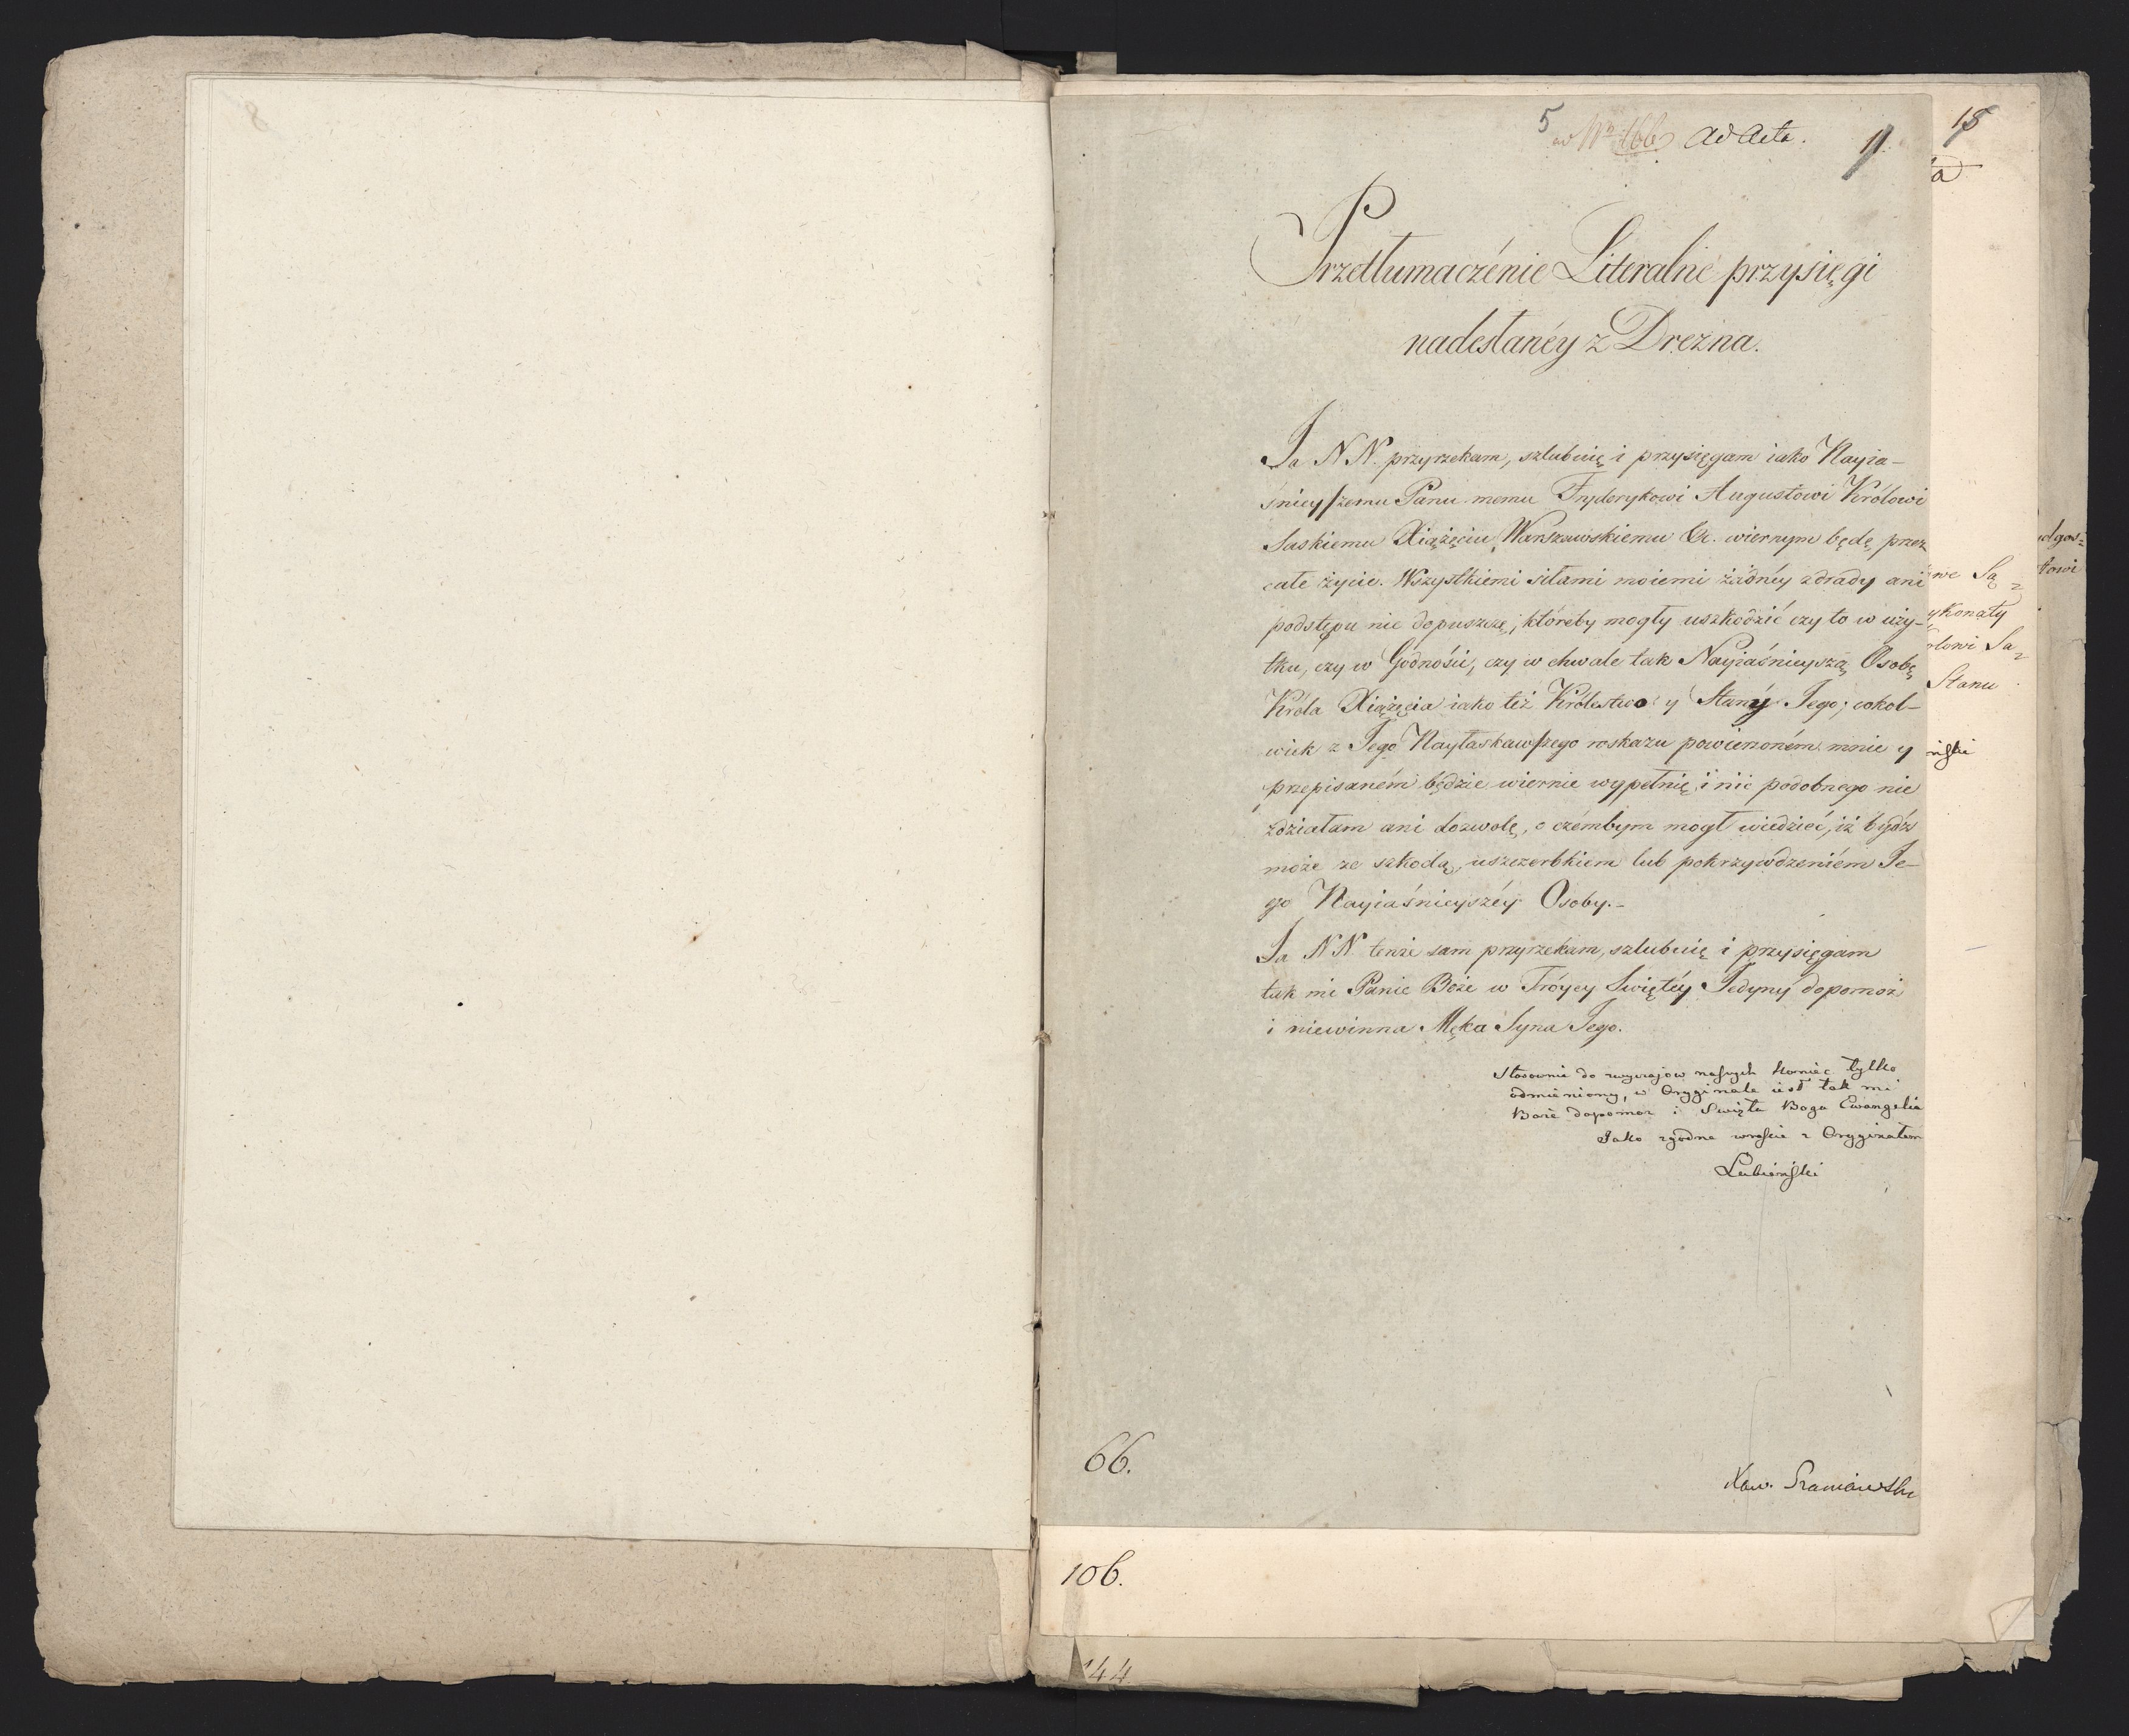 5
ad Nr 166 ad Acta.
11
15
Przetłumaczénie Literalné przysięgi
nadesłanéy z Drezna.
Ja NN. przyrzekam, szlubuię i przysięgam iako Nayia-
śnieyszemu Panu memu Fryderykowi Augustowi Królowi
Saskiemu Xiążęciu Warszawskiemu &c. wiernym będę przez
całe życie. Wszystkiemi siłami moiemi żadnéy zdrady ani
podstępu nie dopuszczę, któreby mogły uszkodzić czy to w uży-
tku, czy w Godnośic, czy w chwale tak Nayiaśnieyszą Osobę
Króla Xiążęcia iako też Królestwo y Stany Jego; cokol-
wiek z Jego Nayłaskawszego roskazu powierzoném mnie y
przepisaném będzie wiernie wypełnię, i nic podobnego nie
zdziałam ani dozwolę, o czémbym mogł wiedzieć, iż bydź
może ze szkodą, uszczerbkiem lub pokrzywdzeniém Je-
go Nayiaśnieyszéy Osoby.-
Ja NN tenże sam przyrzekam, szlubuię i przysięgam
tak mi Panie Boże w Tróycy Swiętéy Jedyny dopomoż
i niewinna Męka Syna Jego.
Stosownie do zwyczajów naszych koniec tylko
odmieniony, w Oryginale iest tak mi
Boże dopomoz i Swięta Boga Ewangelia
Jako zgodne wrescie z Oryginałem
Lubieński
66.
Xaw. Szaniawski
106.
144
we Są=
ykonały
olowi Sa=
Stanu
iński